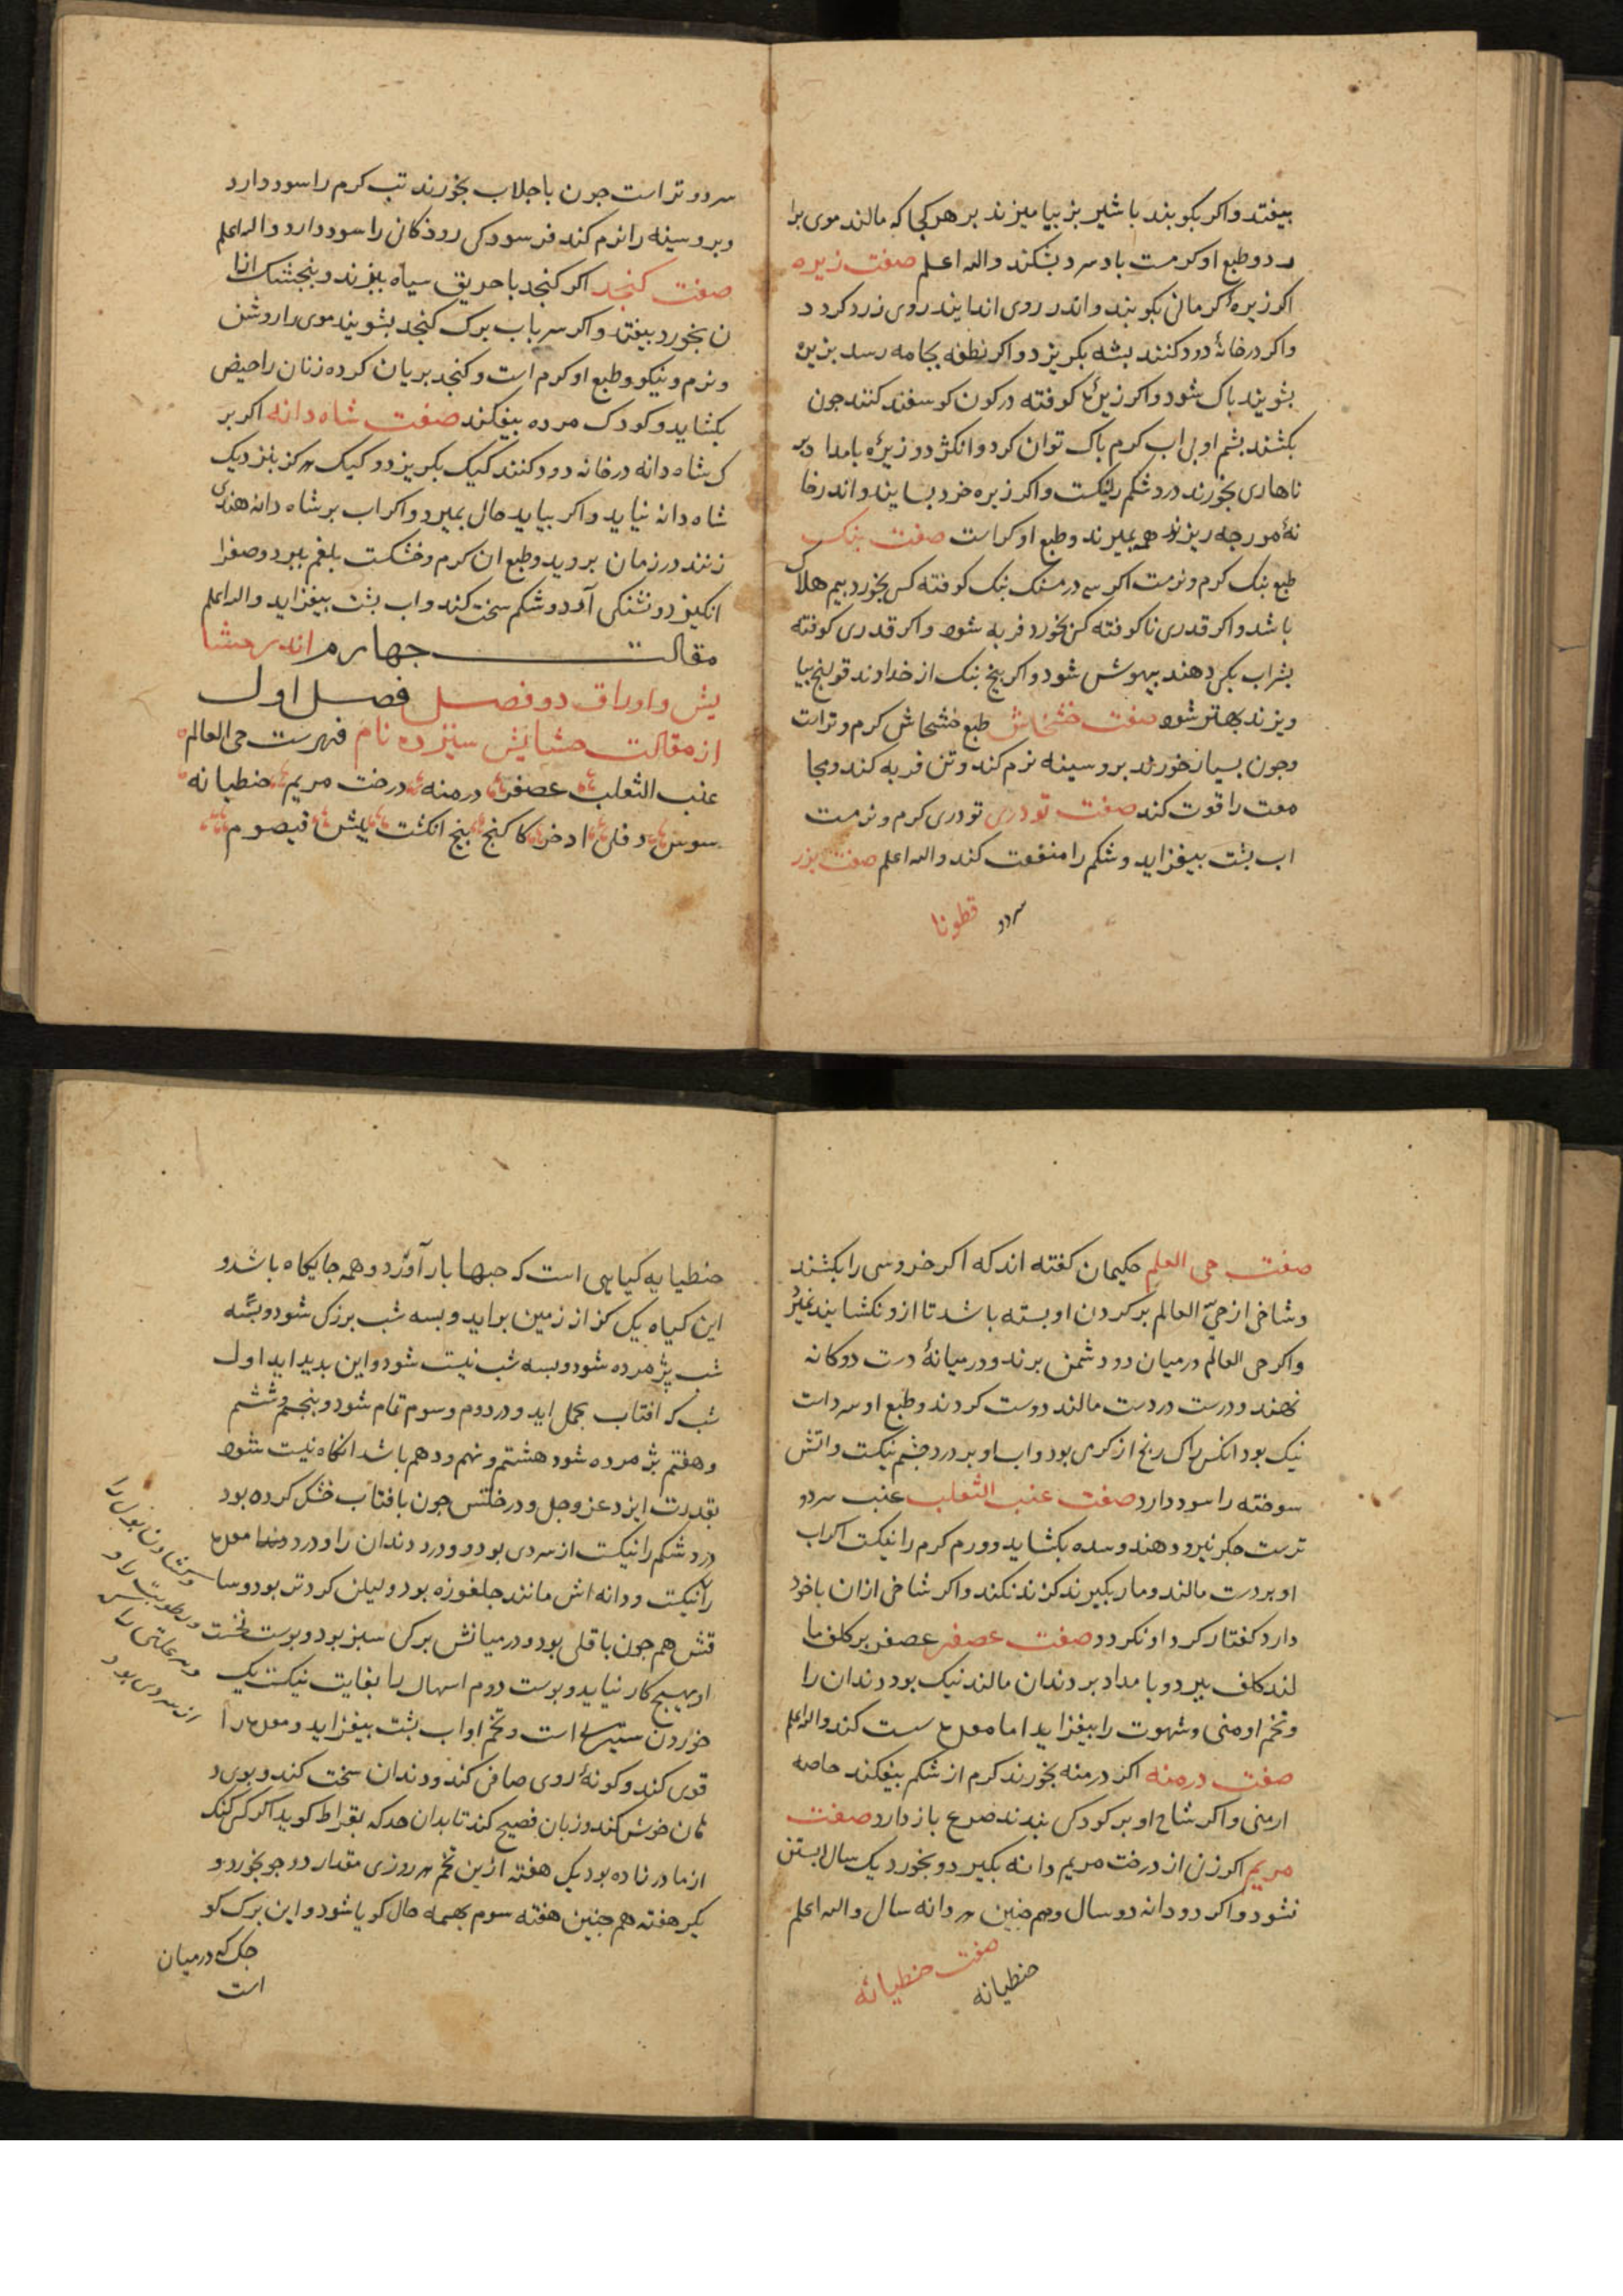 بیفتد واکر بکوبند با شیر بز بیامیزند بر هر کجا که مالند موی برا
رد وطبع او کرمست باد سرد بشکند والله اعلم صفت زیره
اکر زیرهٔ کرمانی بکوبند واندر روی اندایند روی زرد کردد
واکر در خانهٔ دود کنند بشه بکریزد واکر نطفه بجامه رسد بزیره
بشویند باک شود واکر زیره کوفته در کون کوسفند کنند جون
بکشند بشم اوبی اب کرم باک توان کرد وانکژد وزیرهٔ بامداد بر
ناهاری بخورند درد شکم رانیکست واکر زیره خرد بسایند واندر خا
نهٔ مورجه ریزند همه بمیرند وطبع او کراست صفت بنک
طبع بنک کرم ونرمت اکر سه درمسنک بنک کوفته کسی بخورد بیم هلاک
باشد واکر قدری ناکوفته کس بخورد فربه شود واکر قدری کوفته
بشراب بکس دهند بیهوش شود واکر بیخ بنک از خداوند قولنج بیا
ویزند بهتر شود صفت خشخاش طبع خشخاش کرم وتراست
وجون بسیار خورند بر وسینه نرم کند وتن فربه کند ومجا
معت را قوت کند صفت تودری تودری کرم ونرمت
اب بشت بیفزاید وشکم را منفعت کند والله اعلم صفت بزر
قطونا سرد و
سرد وتر است جون با جلاب بخورند تب کرم را سود دارد
وبر وسینه را نرم کند فرسودکی رودکان را سود دارد والله اعلم
صفت کنجد اکر کنجد با حریق سیاه ببزند وبنجشک انا
ن بخورد بیفتد واکر سر باب برک کنجد بشویند موی را روشن
ونرم ونیکو وطبع او کرم است وکنجد بریان کرده زنان را حیض
بکشاید وکودک مرده بیفکند صفت شاه دانه اکر بر
ک شاه دانه در خانه دود کنند کیک بکریزد وکیک هرکز بنزدیک
شاه دانه نیاید واکر بیاید حال بمیرد واکر اب بر شاه دانه هندی
زنند در زمان بروید وطبع ان کرم وخشکست بلغم ببرد وصفرا
انکیزد وتشنکی آرد وشکم سخت کند واب بشت بیفزاید والله اعلم
مقالت جهارم اندر حشا
یش واوراق دو فصل فصل اول
از مقالت حشایش سیزده نام فهرست حی العالم
عنب الثعلب عصفر درمنه درخت مریم حنطیانه
سوس دفلی اذخر کاکنج بنج انکشت بیش قیصوم
صفت حی العلم حکیمان کفته اند که اکر خروسی را بکشند
وشاخی از حی العالم بر کردن او بسته باشد تا ازو نکشایند نمیرد
واکر حی العالم درمیان دو دشمن برند ودرمیانهٔ درست دوکانه
نهند ودرست در دست مالند دوست کردند وطبع او سرد است
نیک بود انکس را که رنج از کرمی بود واب او بر درد چشم نیکست واتش
سوخته را سود دارد صفت عنب الثعلب عنب سرد و
ترست جکر نیرو دهند وسده بکشاید وورم کرم را نیکست اکر اب
او بر دست مالند ومار بکیرند کزند نکند واکر شاخی ازان با خود
دارد کفتار کرد او نکردد صفت عصفر عصفر بر کلف ما
لند کلف ببرد وبامداد بر دندان مالند نیک بود دندان را
وتخم او منی وشهوت را بیفزاید اما معده سست کند والله اعلم
صفت درمنه اکر درمنه بخورند کرم از شکم بیفکند خاصه
ارمنی واکر شاخ او بر کودکی بندند صرع باز دارد صفت
مریم اکر زن از درخت مریم دانه بکیرد وبخورد یک سال ابستن
نشود واکر دو دانه دو سال وهم جنین هر دانه سال والله اعلم
صفت حنطیانه
حنطیانه
حنطیابه کیاهی است که حبها بار آورد وهمه جایکاه باشد و
این کیاه یکی کز از زمین براید وبسه شب بزرک شود وبسه
شب بژمرده شود وبسه شب نیست شود واین بدید اید اول
شب که افتاب بحمل اید ودر دوم وسوم تمام شود وبنجم وششم
وهفتم بژمرده شود هشتم ونهم ودهم باشد انکاه نیست شود
بقدرت ایزد عز وجل ودر خلتس جون بافتاب خشک کرده بود
درد شکم را نیکست از سردی بود ودرد دندان را ودرد معده
را نیکست ودانه اش مانند جلغوزه بود ولیکن کردتر بود وسا
قش هم جون باقلی بود ودرمیانش برکی سبز بود وبوست نخست
او بهیج کار نیاید وبوست دوم اسهال را بغایت نیکست یک
خوردن است وتخم او اب بشت بیفزاید ومعده را
قوی کند وکونهٔ روی صافی کند ودندان سخت کند وبوی د
هان خوش کند وزبان فصیح کند تا بدان حد که بقراط کوید اکر کسی کنک
از مادر زاده بود یک هفته ازین تخم هر روزی مقدار دو جو بخورد و
یکر هفته هم جنین هفته سوم بهمه حال کویا شود واین برک کو
جک که درمیان
است
وکشادن بول را
ورطوبت را و
وهر علتی را کی
از سردی بود